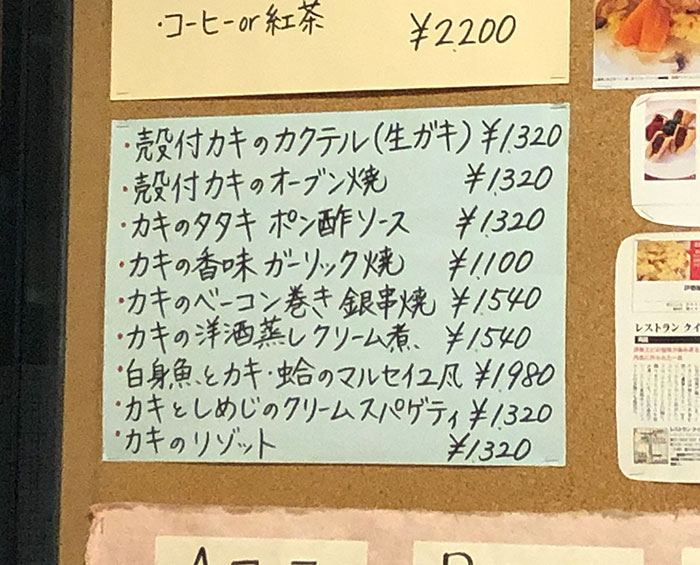 ・コーヒーor紅茶 ¥2200
・殻付カキのカクテル(生ガキ) ¥1.320
・殻付カキのオーブン焼 ¥1.320
・カキのタタキ ポン酢ソース ¥1.320
・カキの香味 ガーリック焼 ¥1.100
・カキのベーコン巻き 銀串焼 ¥1.540
・カキの洋酒蒸しクリーム煮、 ¥1540
・白身魚とカキ・蛤のマルセイユ風 ¥1.980
・カキとしめじのクリームスパゲティ ¥1.320
・カキのリゾット ¥1.320
レストラン クイ